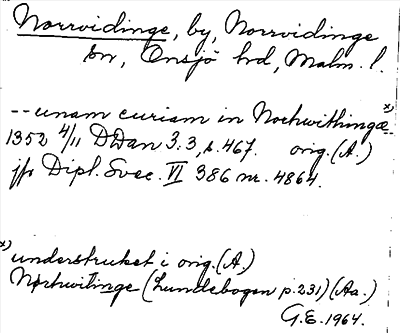 Norrvidinge, by, Norrvidinge
sn, Onsjö hd, Malm. l.
-- unam curiam in Norhwithingæ x) --
1352 4/11 DDan 3:3, s. 467. orig. (A.)
jfr Dipl. Svec. VI 386 nr. 4864.
x) understruket i orig. (A.)
Norhwitinge (Lundebogen p. 231) (Aa.)
G.E. 1964.